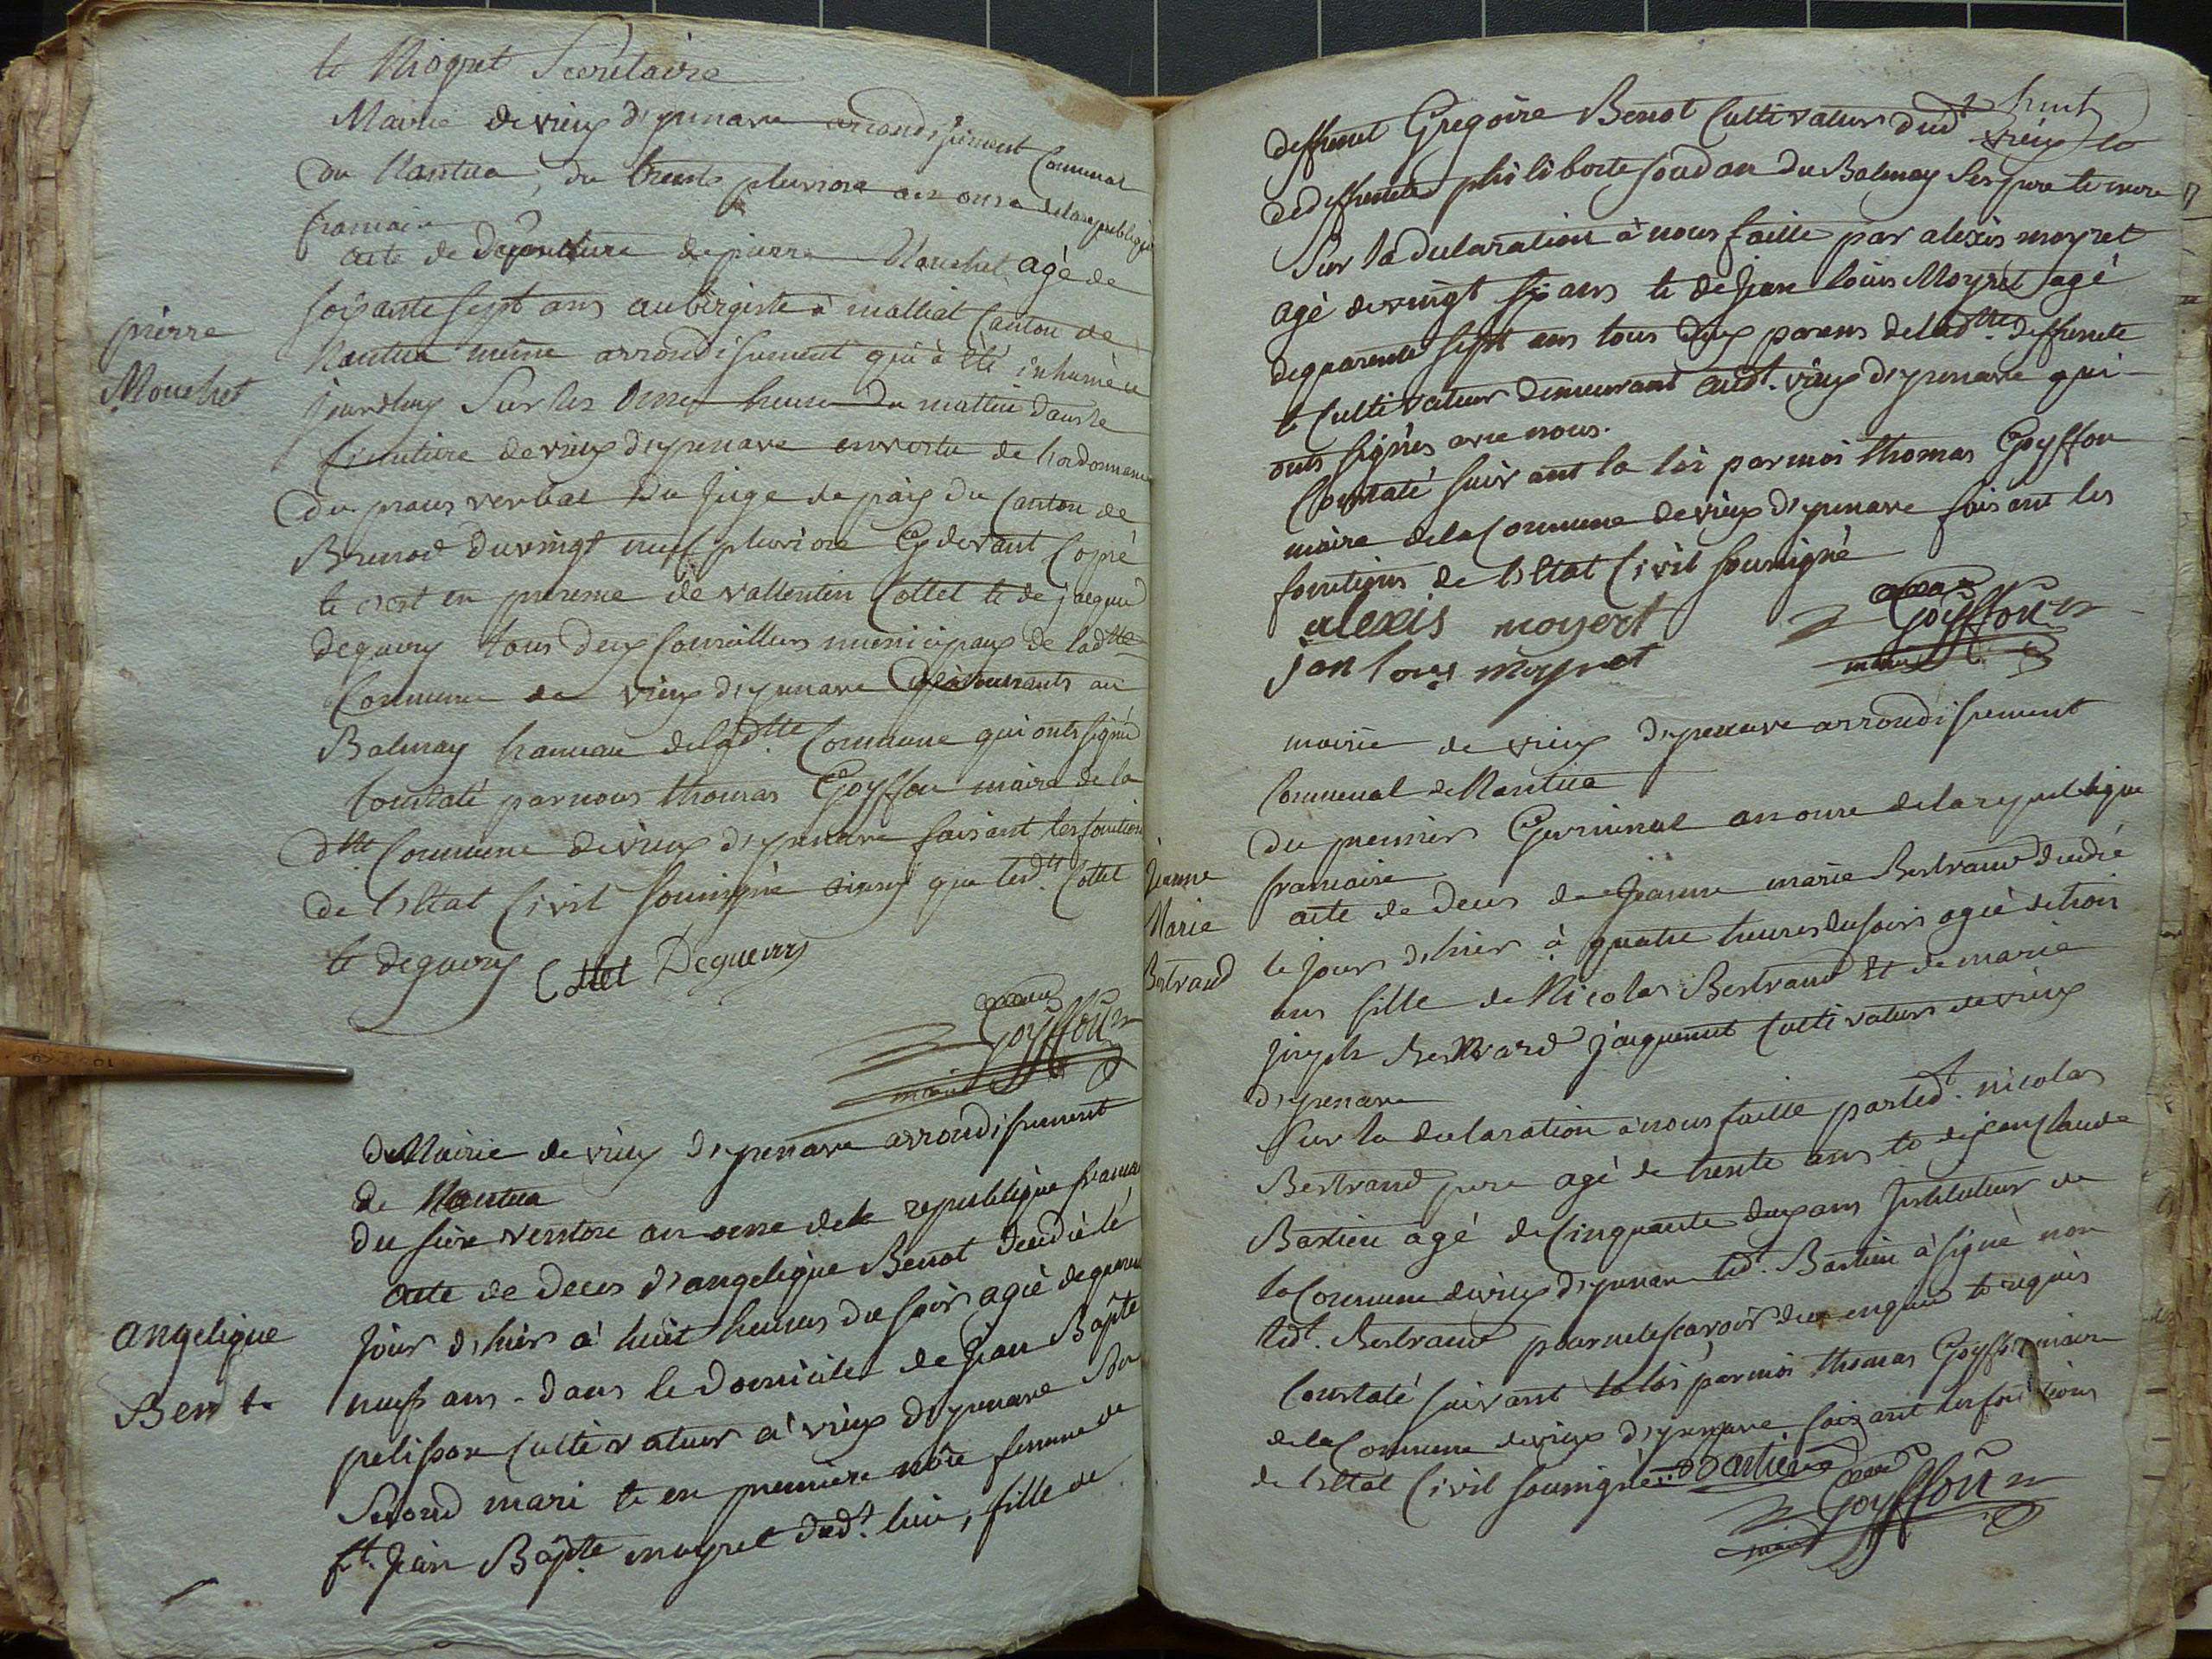 Secretaire
Mairie de vieux d'yzenave arrondissement Communal
de Nantua, du trente pluviose an onze de la republique
francaise
acte de de pierre Mouchet agé de
soixante sept ans aubergiste à mailliat Canton de
Nantua meme arrondissement qui à été inhumé ce
jourdhuy sur les onze heures du mattin dans le
cimetiere de vieux d'yzenave en vertu de l'ordonnance
du proces verbal du juge de paix du Canton de
Brenod du vingt neuf pluviose Cy devant Copié
et c'est en presence de vallentin Cottet et de jacques
deguery tous deux Conseillers municipaux de ladtte
Commune de vieux d'yzenave demeurants au
Balmay hameau de ladtte Commune qui onts signés
Constaté par nous thomas Goyffon maire de la
dtte Commune de vieux d'yzenave faisant les fonctions
de l'Etat Civil soussigné ainsy que lesdts Cottet
et deguery Cottet Deguerry
Goyffon
maire
pierre
Mouchet
Mairie de vieux d'yzenave arrondissement
de Nantua
du seize ventose an onze de la republique francaise
acte de deces d'angelique Benot decedée le
jour d'hier à huit heures du soir agée de quarente
neuf ans - dans le domicile de jean Bapte
pelisson Cultivateur à vieux d'yzenave son
second mari et en premiere nôce femme de
ft. jean Bapte moyret dudt. lieu, fille de
angelique
Benot
deffunct Gregoire Benot Cultivateur dudt vieux et
de deffuncte philiberte joudan du Balmay ses pere et mere
Sur la declaration à nous faitte par alexis moyret
agé de vingt six ans et de jean louis Moyret agé
de quarente sept ans tous deux parens de ladtte deffuncte
et Cultivateurs demeurant audt. vieux d'yzenave qui
onts signés avec nous.
Constaté suivant la loi par moi thomas Goyffon
maire de la Commune de vieux d'yzenave faisant les
fonctions de l'Etat Civil soussigné
alexis moyert
jan loues moyret
Goyffon
maire
mairie de vieux d'yzenave arrondissement
Communal de Nantua
du premier Germinal an onze de la republique
francaise
acte de deces de Jeanne marie Bertrand decedée
le jour d'hier à quatre heures du soir agée de trois
ans fille de Nicolas Bertrand et de marie
joseph Bernard jacquemet Cultivateurs de vieux
d'yzenave
Sur la declaration à nous faitte par ledt. nicolas
Bertrand pere agé de trente ans et de jean Claude
Bastien agé de Cinquante deux ans Instituteur de
la Commune de vieux d'yzenave ledt. Bastien à signé non
ledt. Bertrand pour ne le scavoir de ce enquis et requis
Constaté suivant la loi par moi thomas Goyffon maire
de la Commune de vieux d'yzenave faisant les fonctions
de l'Etat Civil soussigné Bastien
Goyffon
maire
Jeanne
Marie
Bertrand